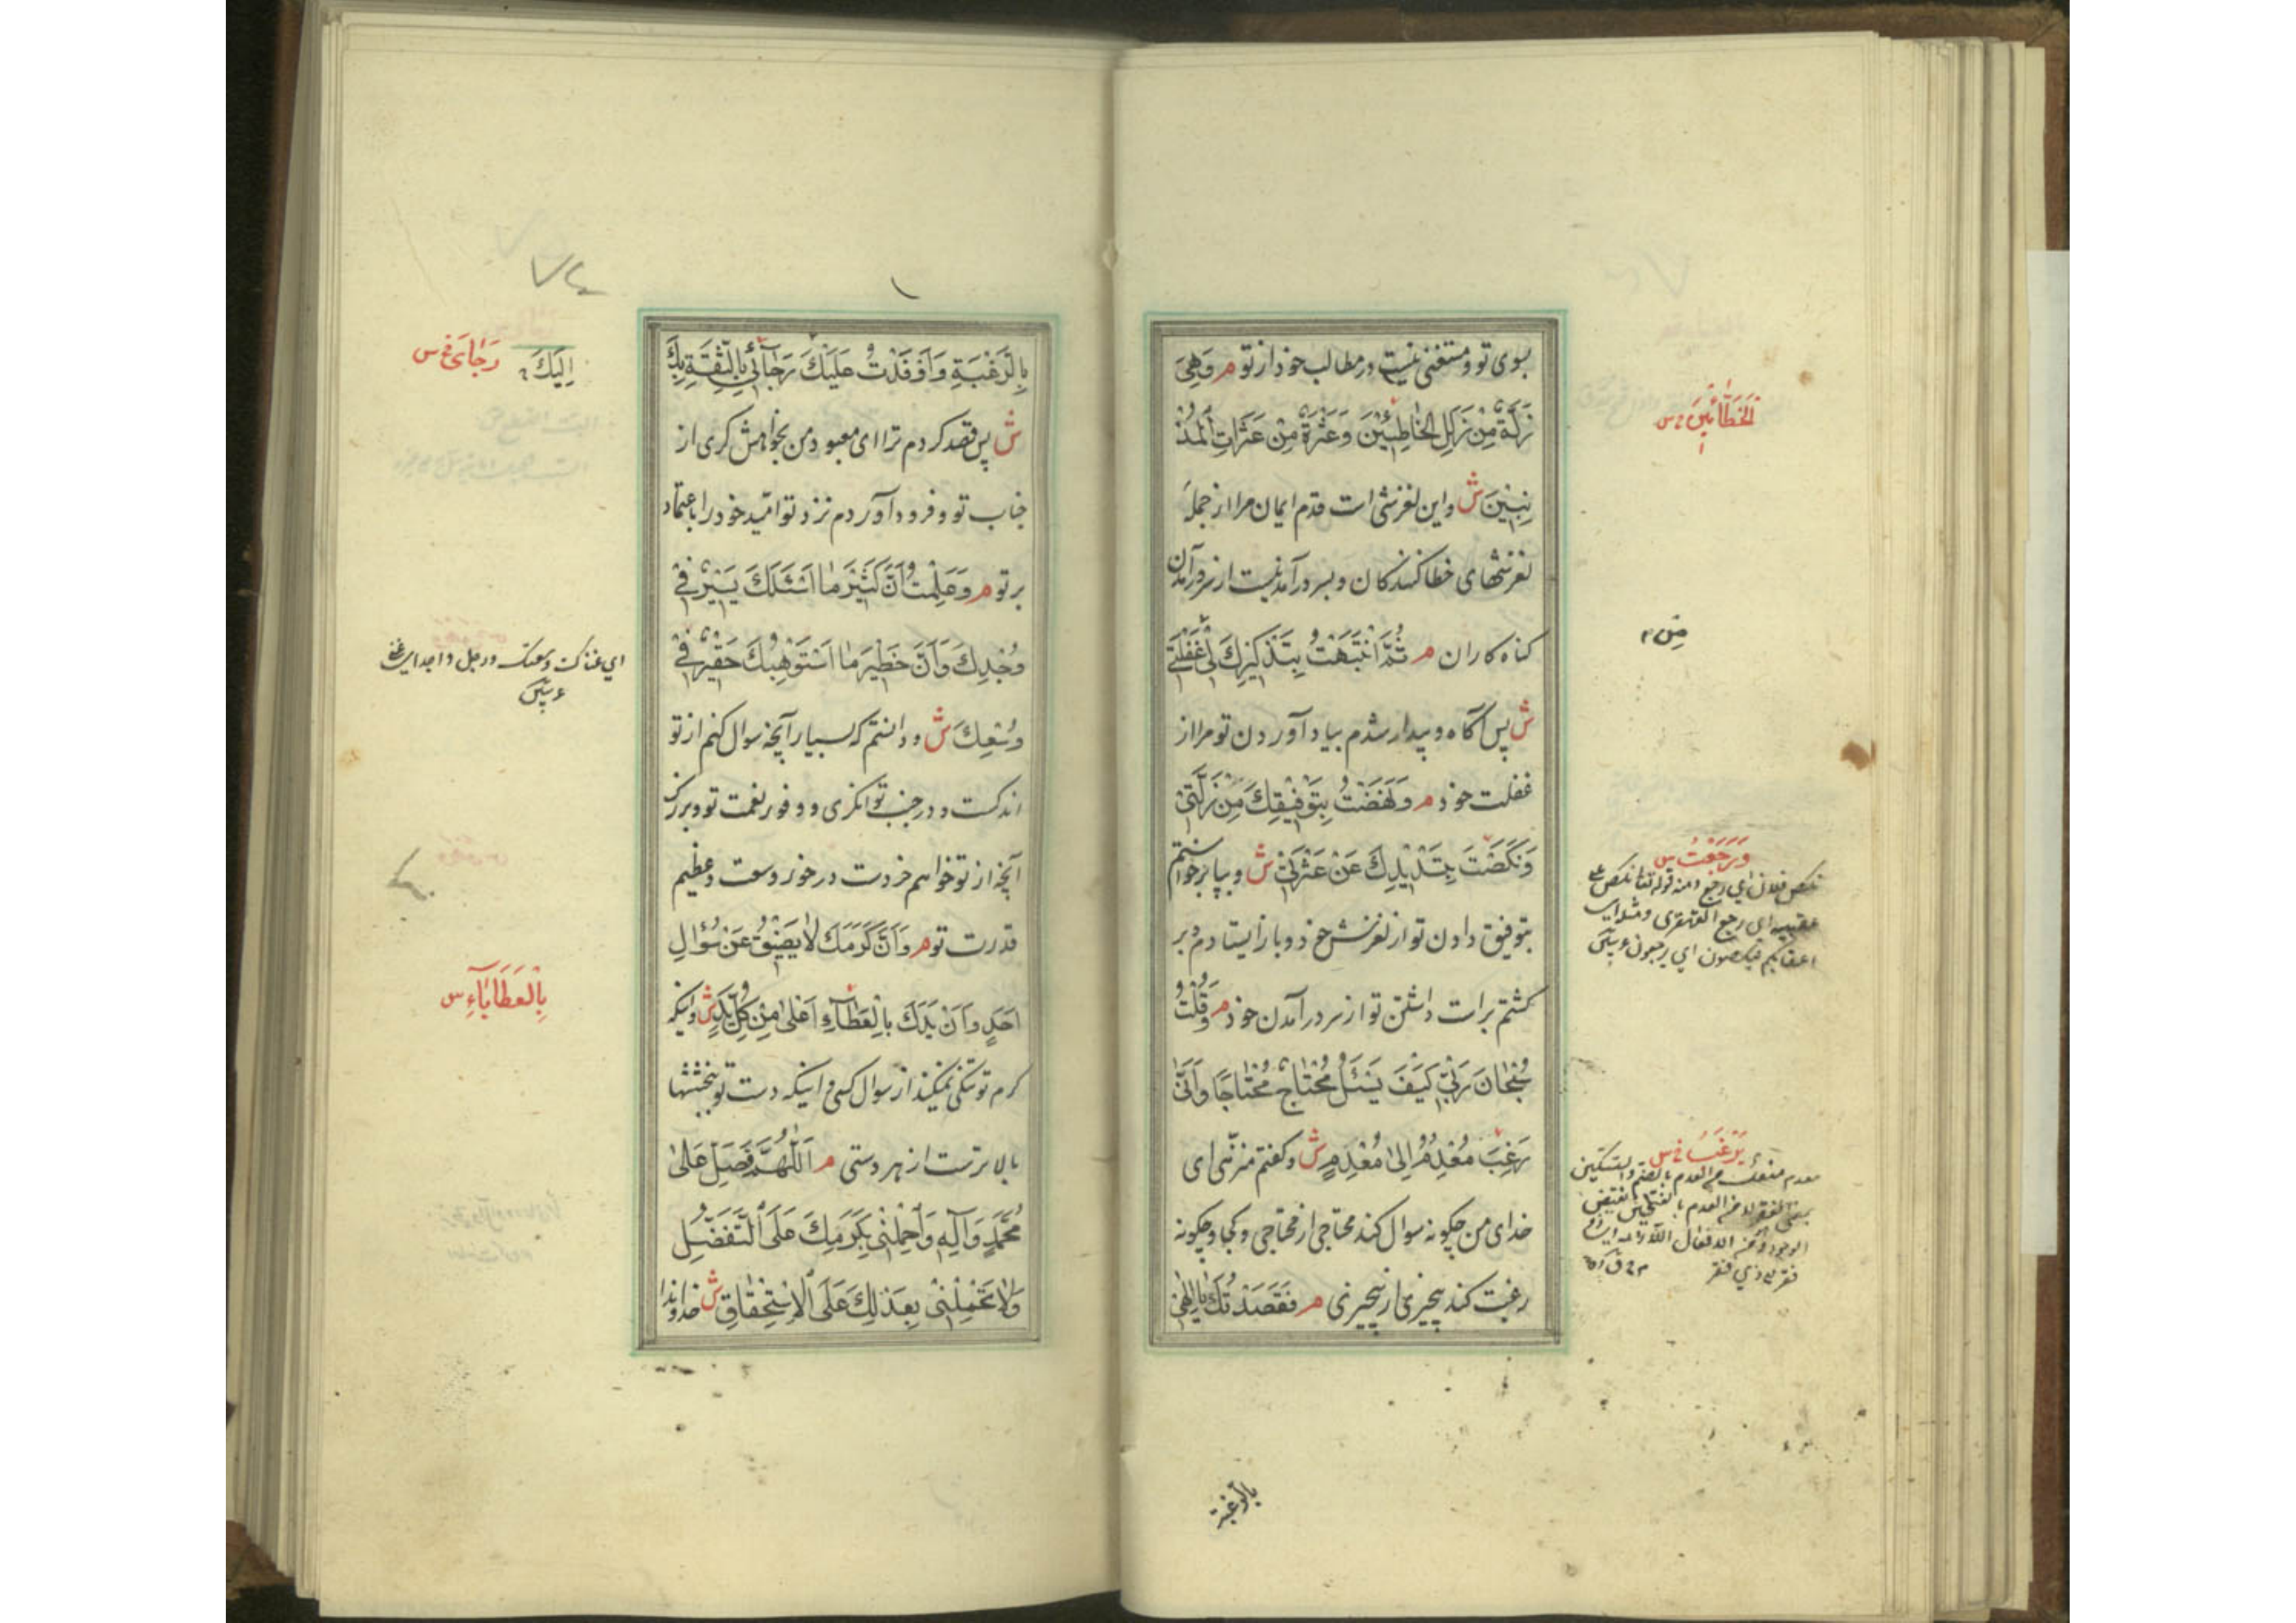 بسوی تو و مستغنی نیست در مطالب خود از تو م وَهِیَ
زَلَّةٌ مِنْ زَلَلِ الْخَاطِئِیْنَ وَعَثْرَةٌ مِنْ عَثَرَاتِ الْمُذْ
نِبِیْنَ ش و این لغزشی است قدم ایمان مرا از جمله
لغزشهای خطا کنندگان و بسر در آمدنیست از سر در آمدن
کناه کاران م ثُمَّ انْتَبَهْتُ بِتَذْکِیْرِكَ لِیْ غَفْلَتِیْ
ش پس آکاه و بیدار شدم بیاد آوردن تو مرا از
غفلت خود م وَنَهَضْتُ بِتَوْفِیْقِكَ مِنْ زَلَّتِیْ
وَنَکَصْتُ بِتَسْدِیْدِكَ عَنْ عَثْرَتِیْ ش و بپا برخواستم
بتوفیق دادن تو از لغزش خود و باز ایستادم و بر
کشتم براست داشتن تو از سر در آمدن خود م وَقُلْتُ
سُبْحَانَ رَبِّیْ کَیْفَ یَسْئَلُ مُحْتَاجٌ مُحْتَاجًا وَاَنّٰی
رَغِبَ مُعْدِمٌ اِلٰی مُعْدِمٍ ش و کفتم منزّهی ای
خدای من چکونه سوال کند محتاجی از محتاجی و کجا و چکونه
رغبت کند بیچیزی از بیچیزی م فَقَصَدْتُكَ یَا اِلٰهِیْ
الْخَطَّائِیْنَ س
مِنْ
وَرَجَعْتُ س
نکص فلان ای رجع ومنه قوله تعالی نکص علی
عقبیه ای رجع القهقری
اعقابکم تنکصون ای یرجعون
یَرْغَبُ س
بالرغبة
بِالرَّغْبَةِ وَاَوْفَدْتُ عَلَیْكَ رَجَآئِیْ بِالثِّقَةِ بِكَ
ش پس قصد کردم ترا ای معبود من بخواهش کری از
جناب تو و فرود آوردم نزد تو امّید خود را باعتماد
بر تو م وَعَلِمْتُ اَنَّ کَثِیْرَ مَا اَسْئَلُكَ یَسِیْرٌ فِیْ
وُجْدِكَ وَاَنَّ خَطِیْرَ مَا اَسْتَوْهِبُكَ حَقِیْرٌ فِیْ
وُسْعِكَ ش و دانستم که بسیار آنچه سوال کنم از تو
اندکست در جنب توانکری و وفور نعمت تو و بزرک
آنچه از تو خواهم خردست در خور وسعت و عظیم
قدرت تو م وَاَنَّ کَرَمَكَ لَا یَضِیْقُ عَنْ سُؤَالِ
اَحَدٍ وَاَنَّ یَدَكَ بِالْعَطَآءِ اَعْلٰی مِنْ کُلِّ یَدٍ ش و اینکه
کرم تو تنکی نمیکند از سوال کسی و اینکه دست تو ببخششها
بالاترست از هر دستی م اَللّٰهُمَّ فَصَلِّ عَلٰی
مُحَمَّدٍ وَآلِهِ وَاحْمِلْنِیْ بِکَرَمِكَ عَلَی التَّفَضُّلِ
وَلَا تَحْمِلْنِیْ بِعَدْلِكَ عَلَی الْاِسْتِحْقَاقِ ش خداوندا
اِلَیْكَ
رَجَایَ س
بِالْعَطَایَآءِ س